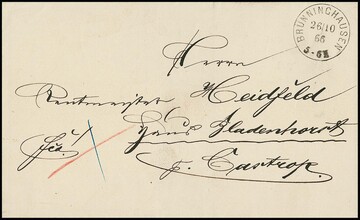 BRÜNNINGHAUSEN
26/10
66
5-6N
Herrn
Rentmeister Heidfeld
Haus Gladenhorst
p. Castrop.